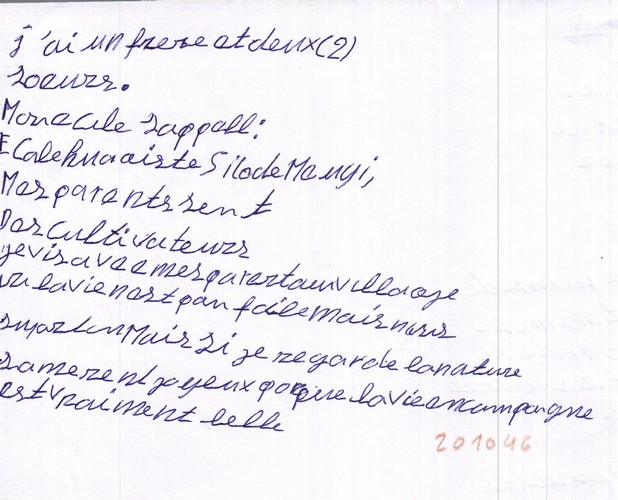 j'ai un frere et deux (2)
soeurs.
Mon ecole s'appell:
Ecole
Mes parents sent
Des cultivateurs
je vis avec mes parest au village
la vie nest pas facile mais nous
Mais si je regarde la nature
sa me rent joyeux parque la vie en campangne
est vraiment belle
201046